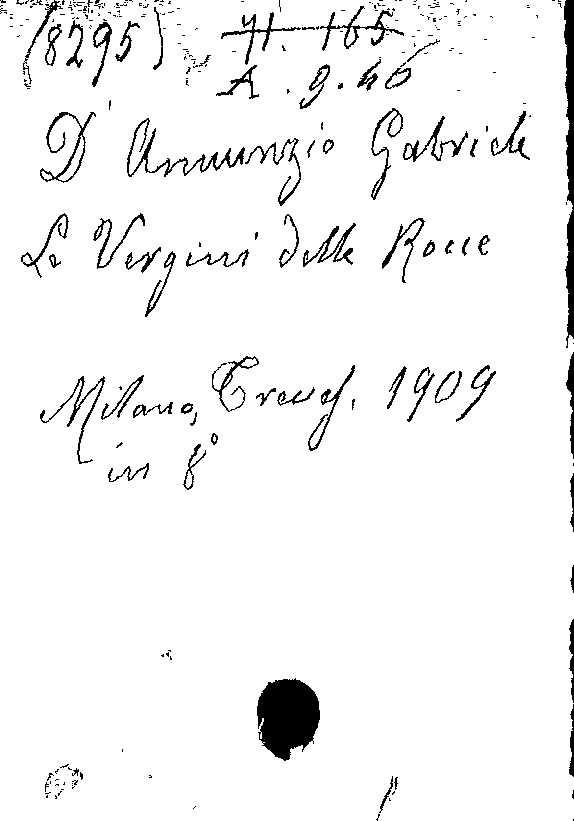 (8295) 71. 165
A. 9. 46
D'Annunzio Gabriele
Le Vergini delle Rocce
Milano, Treves, 1909
in 8°